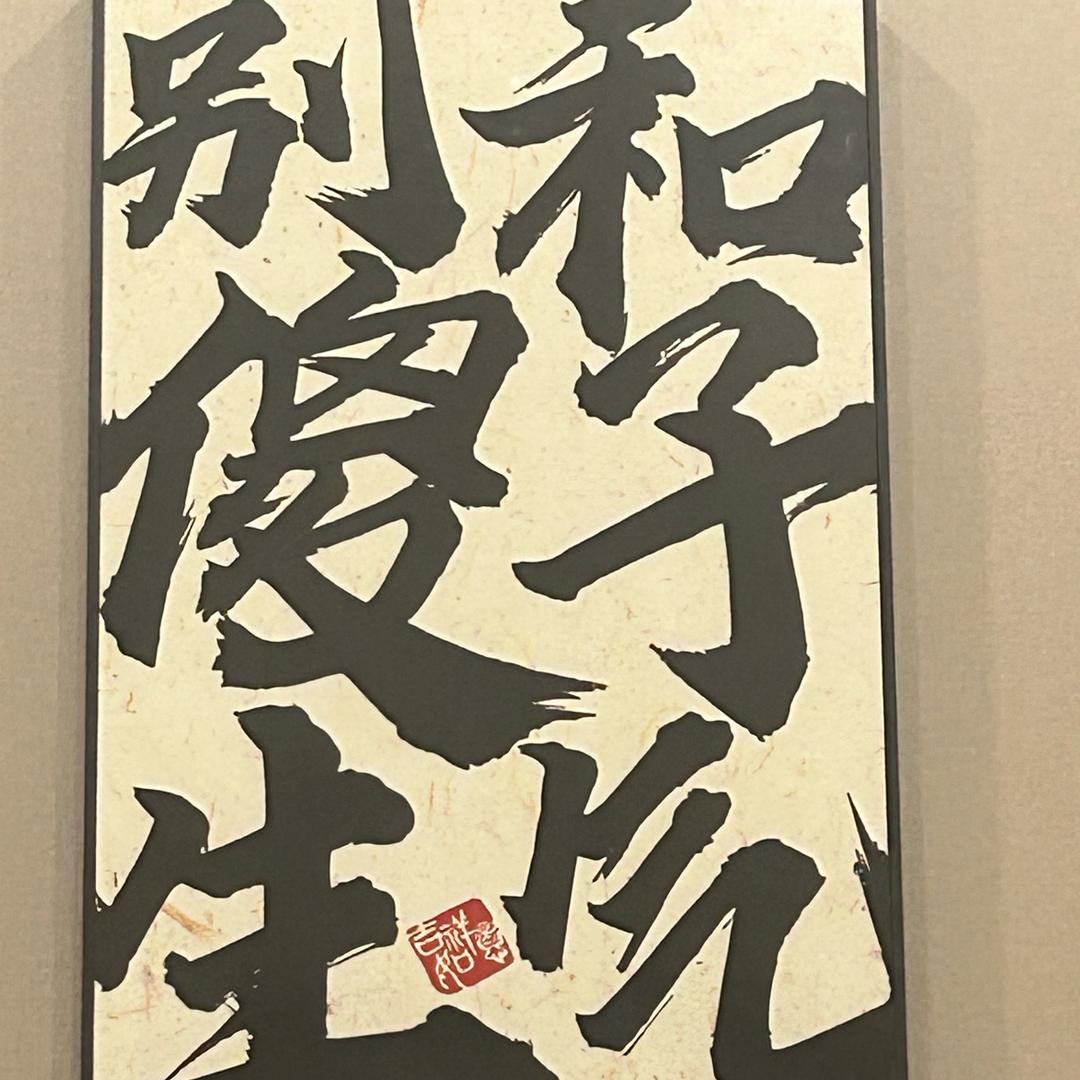 别和
傻子
生气
吉祥如意